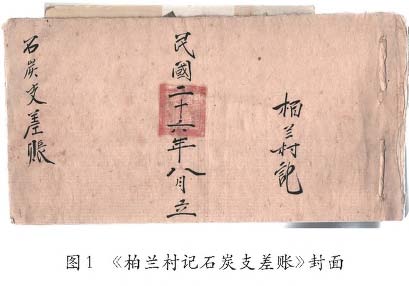 柏兰村記
民國二十六年八月立
石炭支差账
图1 《柏兰村记石炭支差账》封面